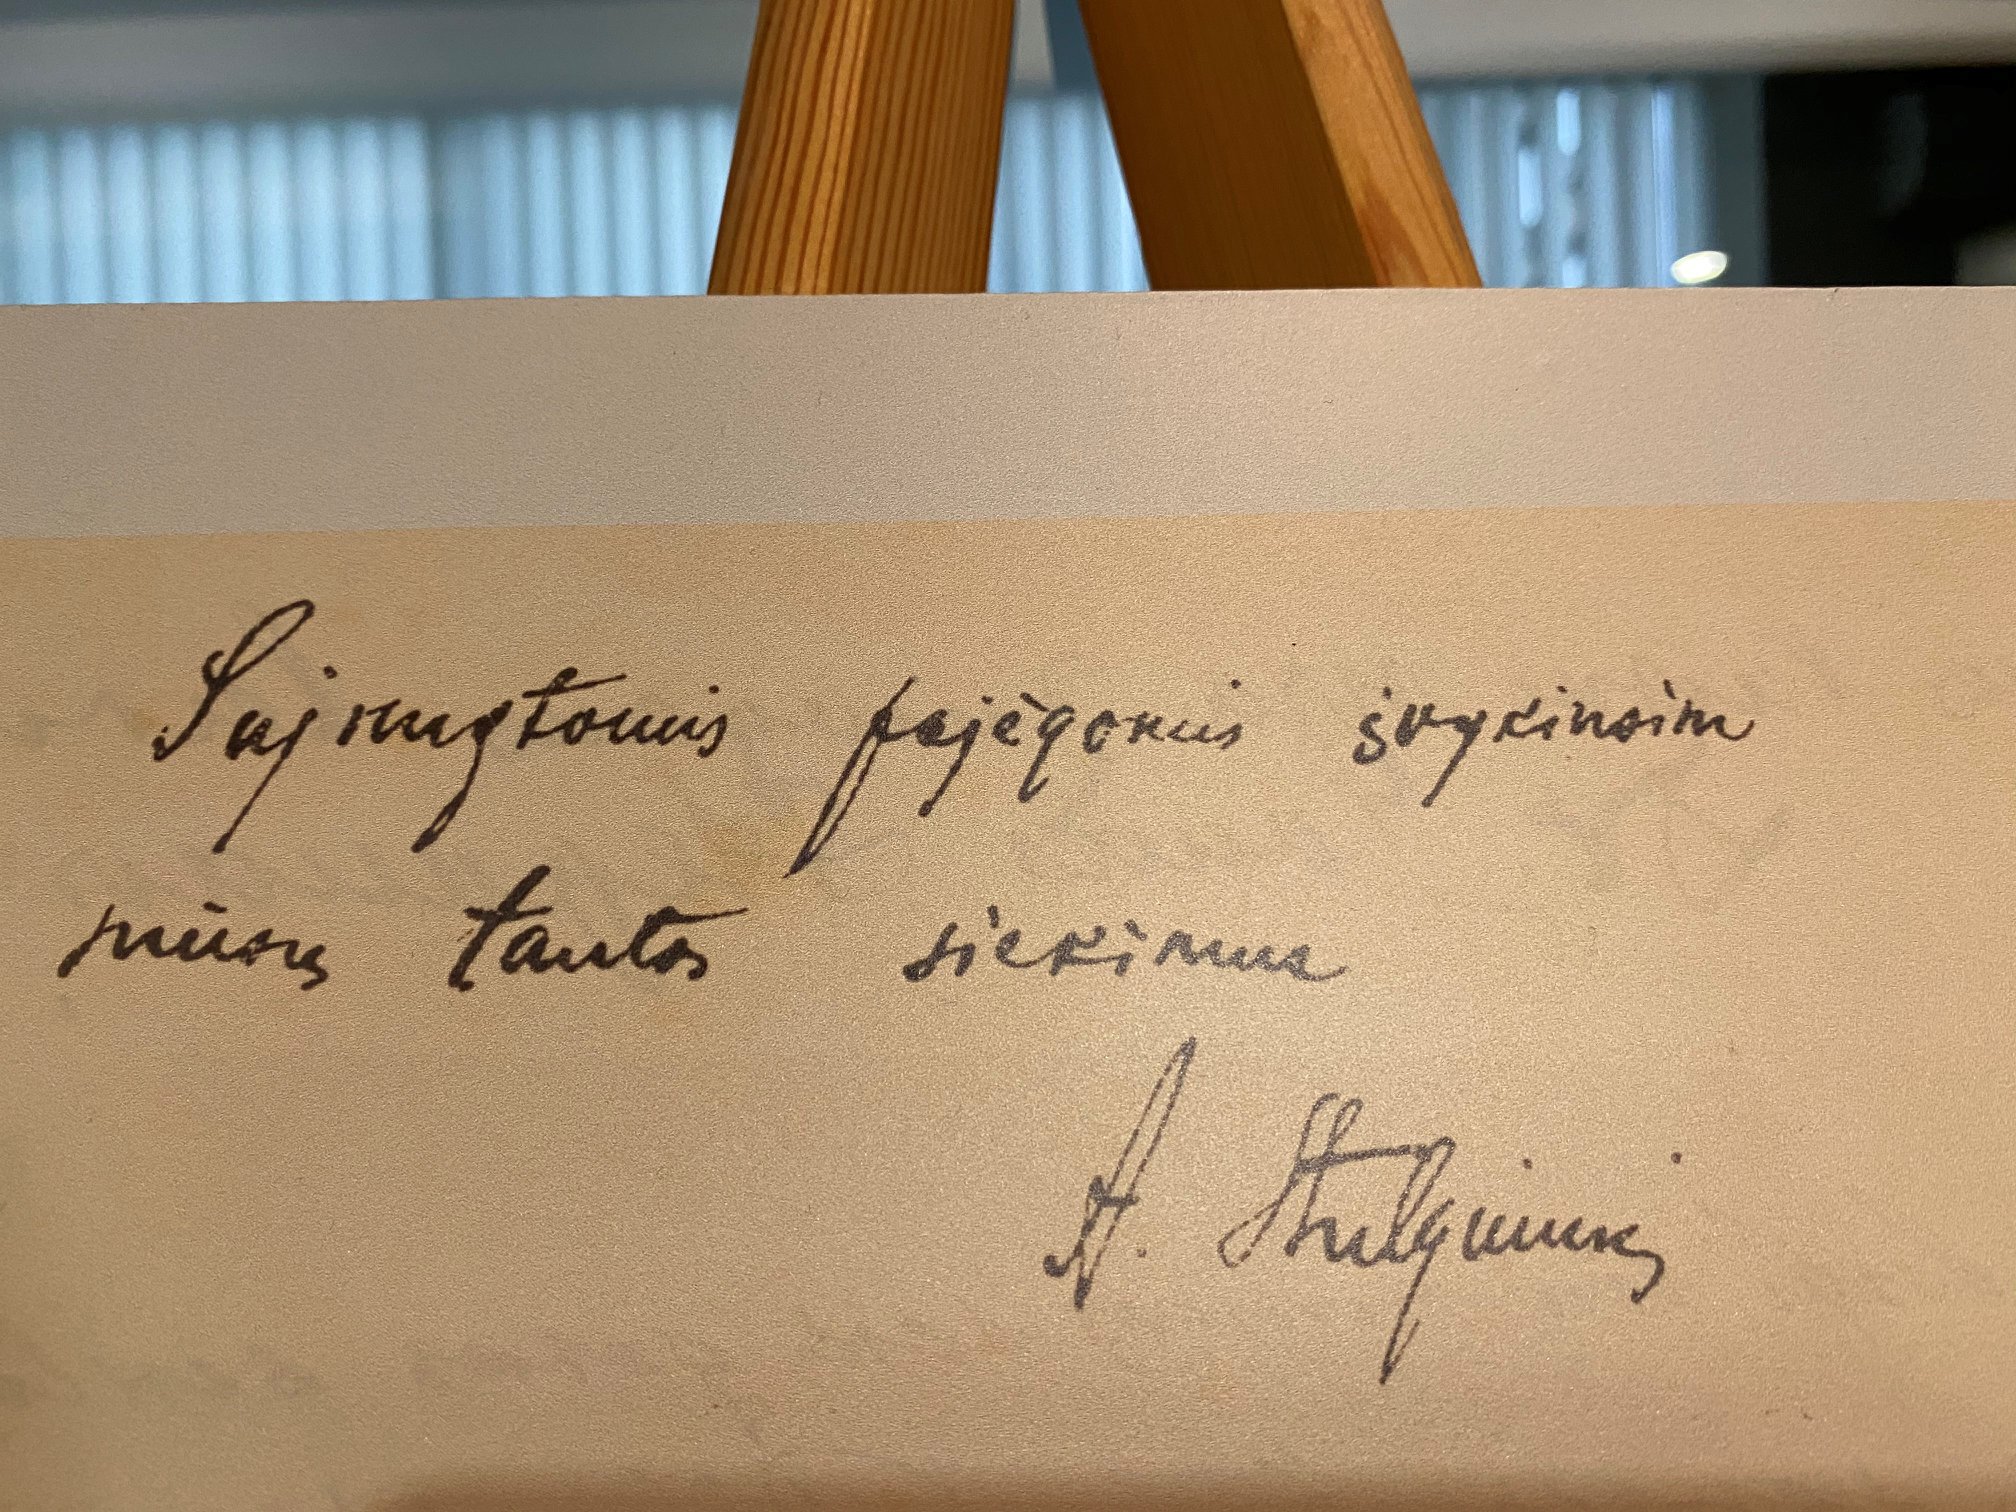 Sujungtomis pajėgomis įvykinsim
mūsų tautos siekimus
A. Stulginskis